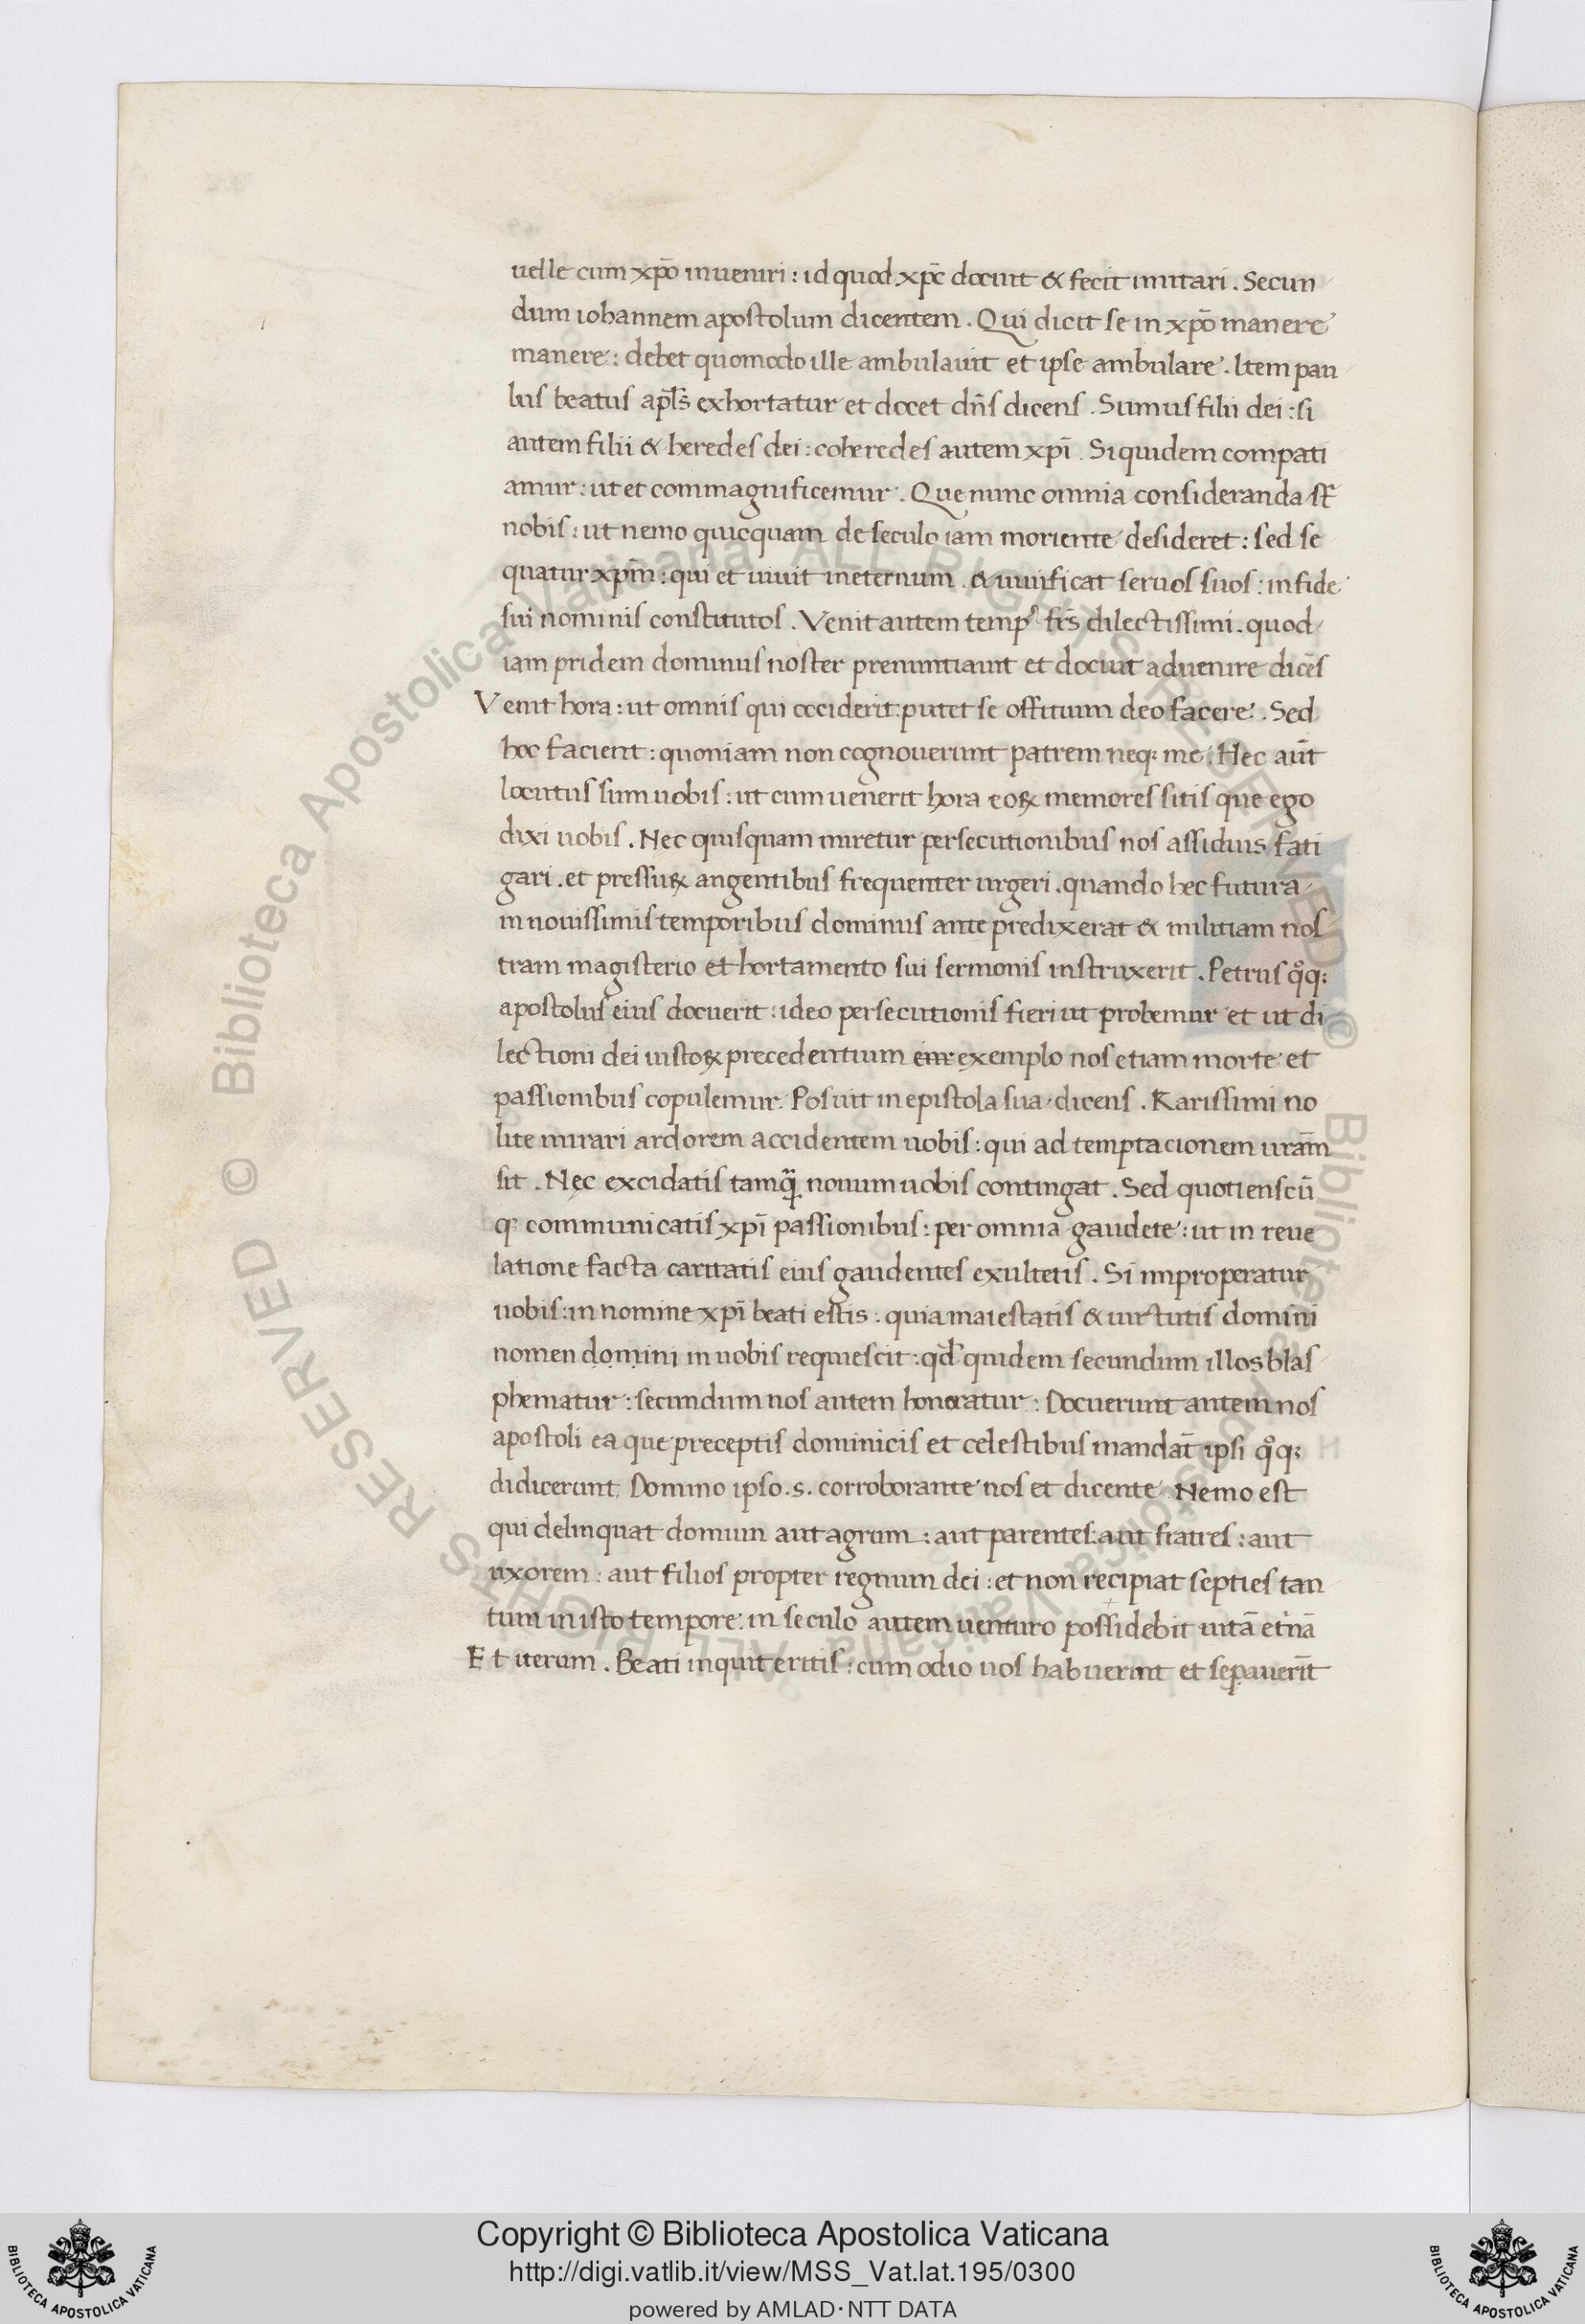 uelle cum xp̄o inueniri : id quod xp̄c docuit & fecit imitari . Secun
dum iohannem apostolum dicentem . Qui dicit se in xp̄o manere
manere : debet quomodo ille ambulauit et ipse ambulare . Item pau
lus beatus apl̄s exhortatur et docet dn̄s dicens . Sumus filii dei : si
autem filii & heredes dei : coheredes autem xp̄i . Siquidem compati
amur : ut et commagnificemur . Que nunc omnia consideranda st̄
nobis : ut nemo quicquam de seculo iam moriente desideret : sed se
quatur xp̄m : qui et uiuit ineternum . & uiuificat seruos suos : in fide
sui nominis constitutos . Venit autem tempꝰ frs̄ dilectissimi . quod
iam pridem dominus noster prenuntiauit et docuit aduenire dicēs
Venit hora : ut omnis qui occiderit : putet se offitium deo facere . Sed
hoc facient : quoniam non cognouerunt patrem neq; me . Hec aūt
locutus sum uobis : ut cum uenerit hora eoꝝ memores sitis que ego
dixi uobis . Nec quisquam miretur persecutionibus nos assiduis fati
gari . et pressuꝝ angentibus frequenter urgeri . quando hec futura
in nouissimis temporibus dominus ante predixerat & militiam nos
tram magisterio et hortamento sui sermonis instruxerit . Petrus qͦq;
apostolus eius docuerit : ideo persecutionis fieri ut probemur et ut di
lectioni dei iustoꝝ precedentium exemplo nos etiam morte et
passionibus copulemur . Posuit in epistola sua dicens . Karissimi no
lite mirari ardorem accidentem uobis : qui ad temptacionem ur̄am
sit . Nęc excidatis tamꝗ̃ nouum uobis contingat . Sed quotienscū
q; communicatis xp̄i passionibus : per omnia gaudete : ut in reue
latione facta caritatis eius gaudentes exultetis . Si improperatur
uobis : in nomine xp̄i beati estis : quia maiestatis & uirtutis domini
nomen domini in uobis requiescit : qd̄ quidem secundum illos blas
phematur : secundum nos autem honoratur : Docuerunt autem nos
apostoli ea que preceptis dominicis et celestibus mandat̄ ipsi qͦq;
didicerunt . Domino ipso . s . corroborante nos et dicente . Nemo est
qui delinquat domum aut agrum : aut parentes : aut fratres : aut
uxorem : aut filios propter regnum dei : et non recipiat septies tan
tum in isto tempore : in seculo autem uenturo possidebit uitā et̄nā
Et iterum . Beati inquit eritis : cum odio uos habuerint et sepauerīt
Copyright © Biblioteca Apostolica Vaticana
http://digi.vatlib.it/view/MSS_Vat.lat.195/0300
powered by AMLAD·NTT DATA
BIBLIOTECA APOSTOLICA VATICANA
BIBLIOTECA APOSTOLICA VATICANA
© Biblioteca Apostolica Vaticana ALL RIGHTS RESERVED
© Biblioteca Apostolica Vaticana ALL RIGHTS RESERVED